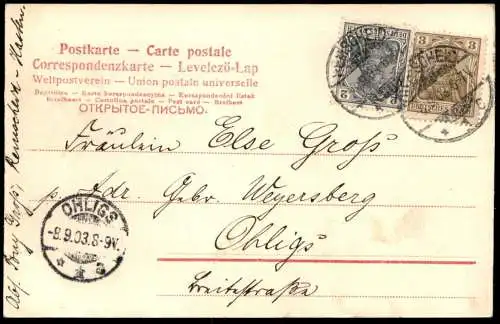 Postkarte — Carte postale
Correspondenzkarte — Levelező-Lap
Weltpostverein — Union postale universelle
Dopisnice — Karta korespondencyjna — Korespondenční lístek
Brevkort — Cartolina postale — Post card — Brefkort
ОТКРЫТОЕ-ПИСЬМО.
Fräulein Else Groß
p. Adr. Gebr. Weyersberg
Ohligs
Breitestraße
OHLIGS
-8.9.03.8-9V.
2
2
3
3
Abs. Groß, Remscheid-Hasten.